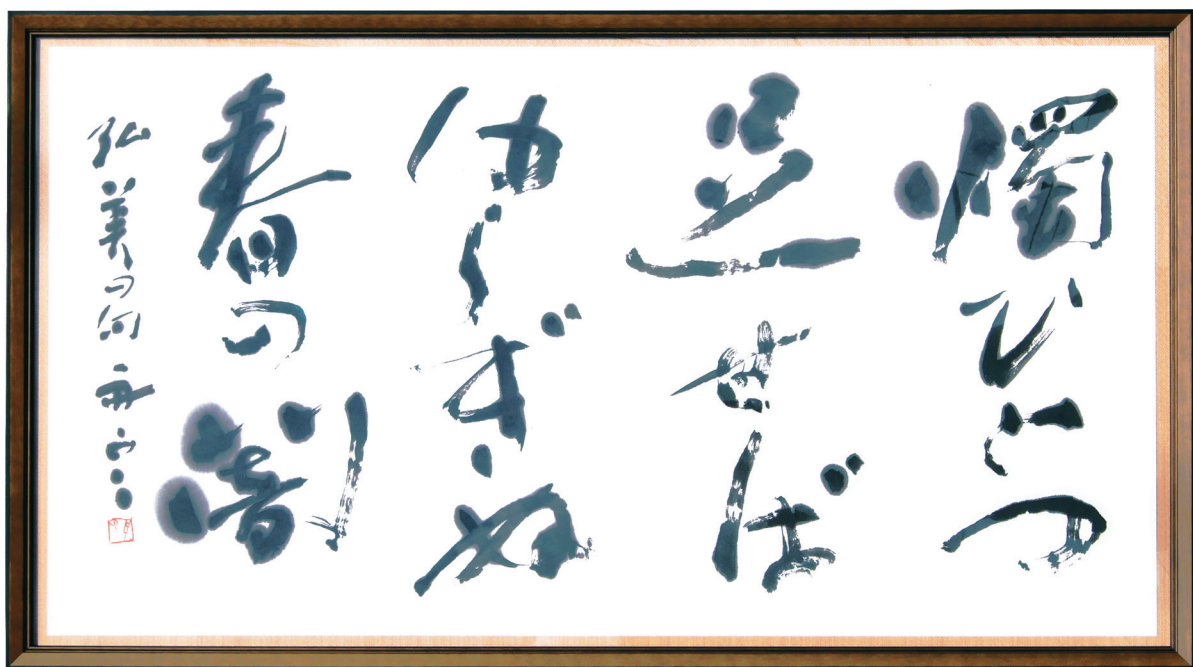 燭ひとつ
足せば
ゆらぎぬ
春の闇
弘美の句